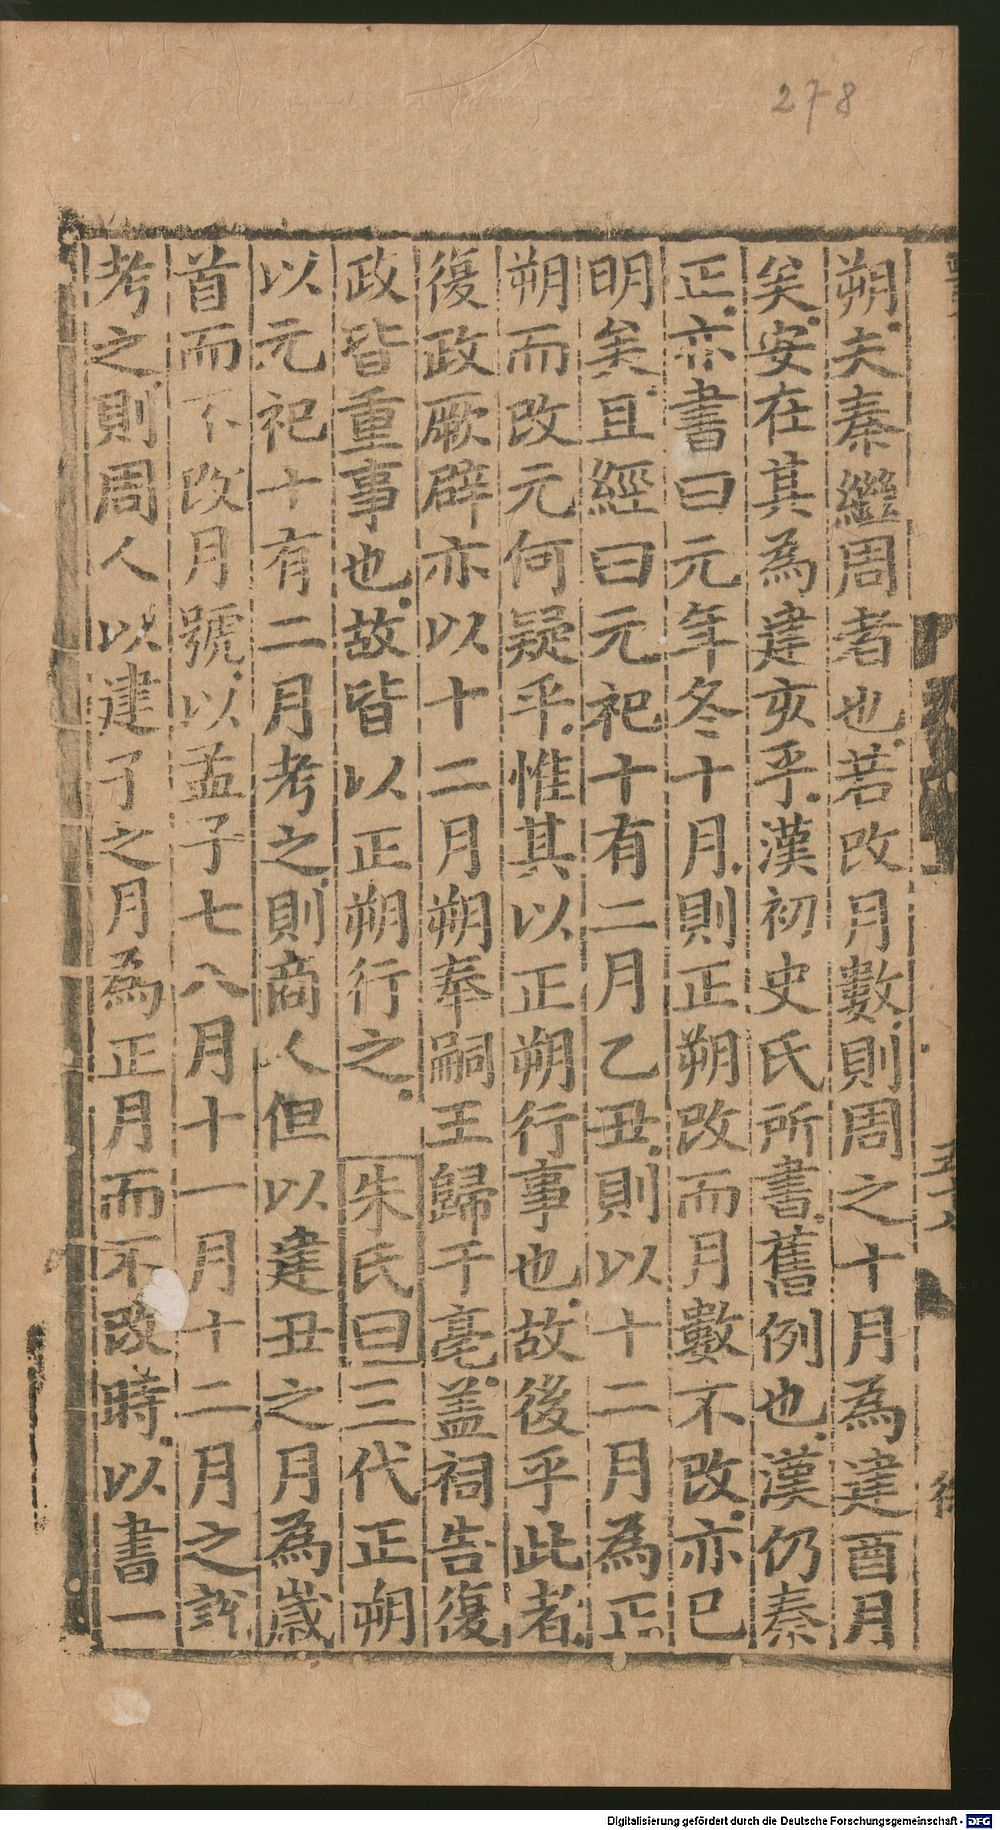 278
朔夫秦繼周者也若改月數則周之十月為建酉月
矣安在其為建亥乎漢初史氏所書舊例也漢仍秦
正亦書曰元年冬十月則正朔改而月數不改亦已
明矣且經曰元祀十有二月乙丑則以十二月為正
朔而改元何疑乎惟其以正朔行事也故後乎此者
復政厥辟亦以十二月朔奉嗣王歸于亳盖祠告復
政皆重事也故皆以正朔行之 朱氏曰三代正朔
以元祀十有二月考之則商人但以建丑之月為歲
首而不改月號以孟子七八月十一月十二月之說
考之則周人以建子之月為正月而不改時以書一
Digitalisierung gefördert durch die Deutsche Forschungsgemeinschaft - DFG